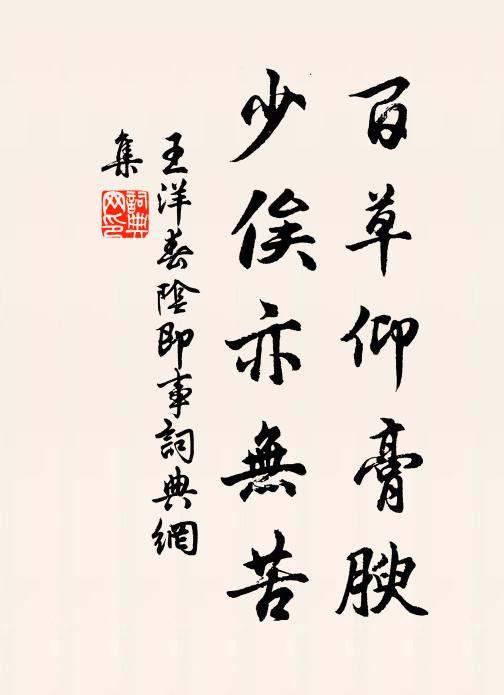 百草仰膏腴
少俟亦無苦
王洋春陰即事詞典網
集
詞典網印